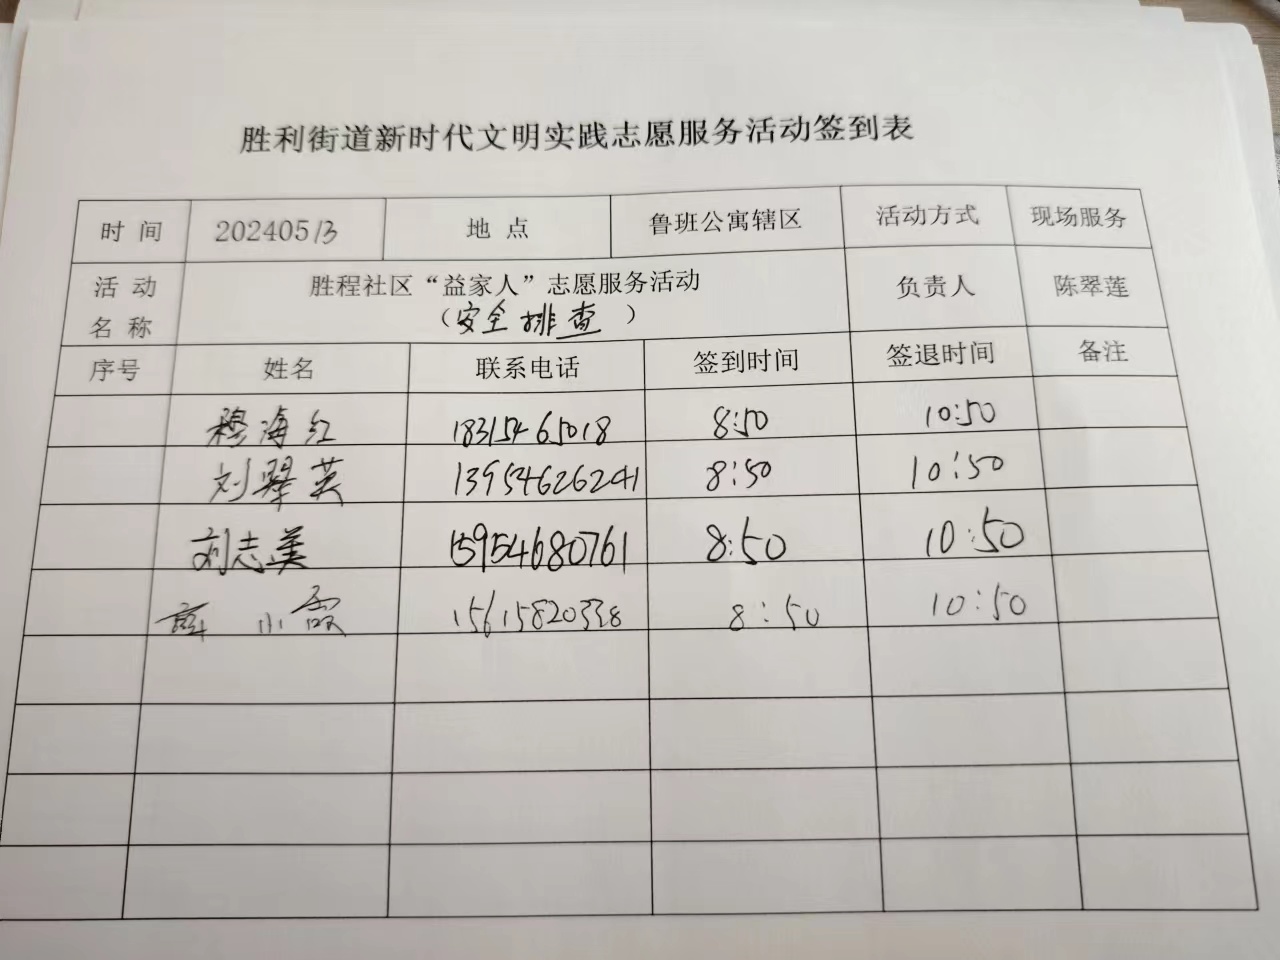 胜利街道新时代文明实践志愿服务活动签到表
时 间 20240513 地 点 鲁班公寓辖区 活动方式 现场服务
活 动 名 称 胜程社区“益家人”志愿服务活动 负责人 陈翠莲
（安全排查）
序号 姓名 联系电话 签到时间 签退时间 备注
穆海红 18315465018 8:50 10:50
刘翠英 13954626241 8:50 10:50
刘志美 15954680761 8:50 10:50
小霞 15615820338 8:50 10:50